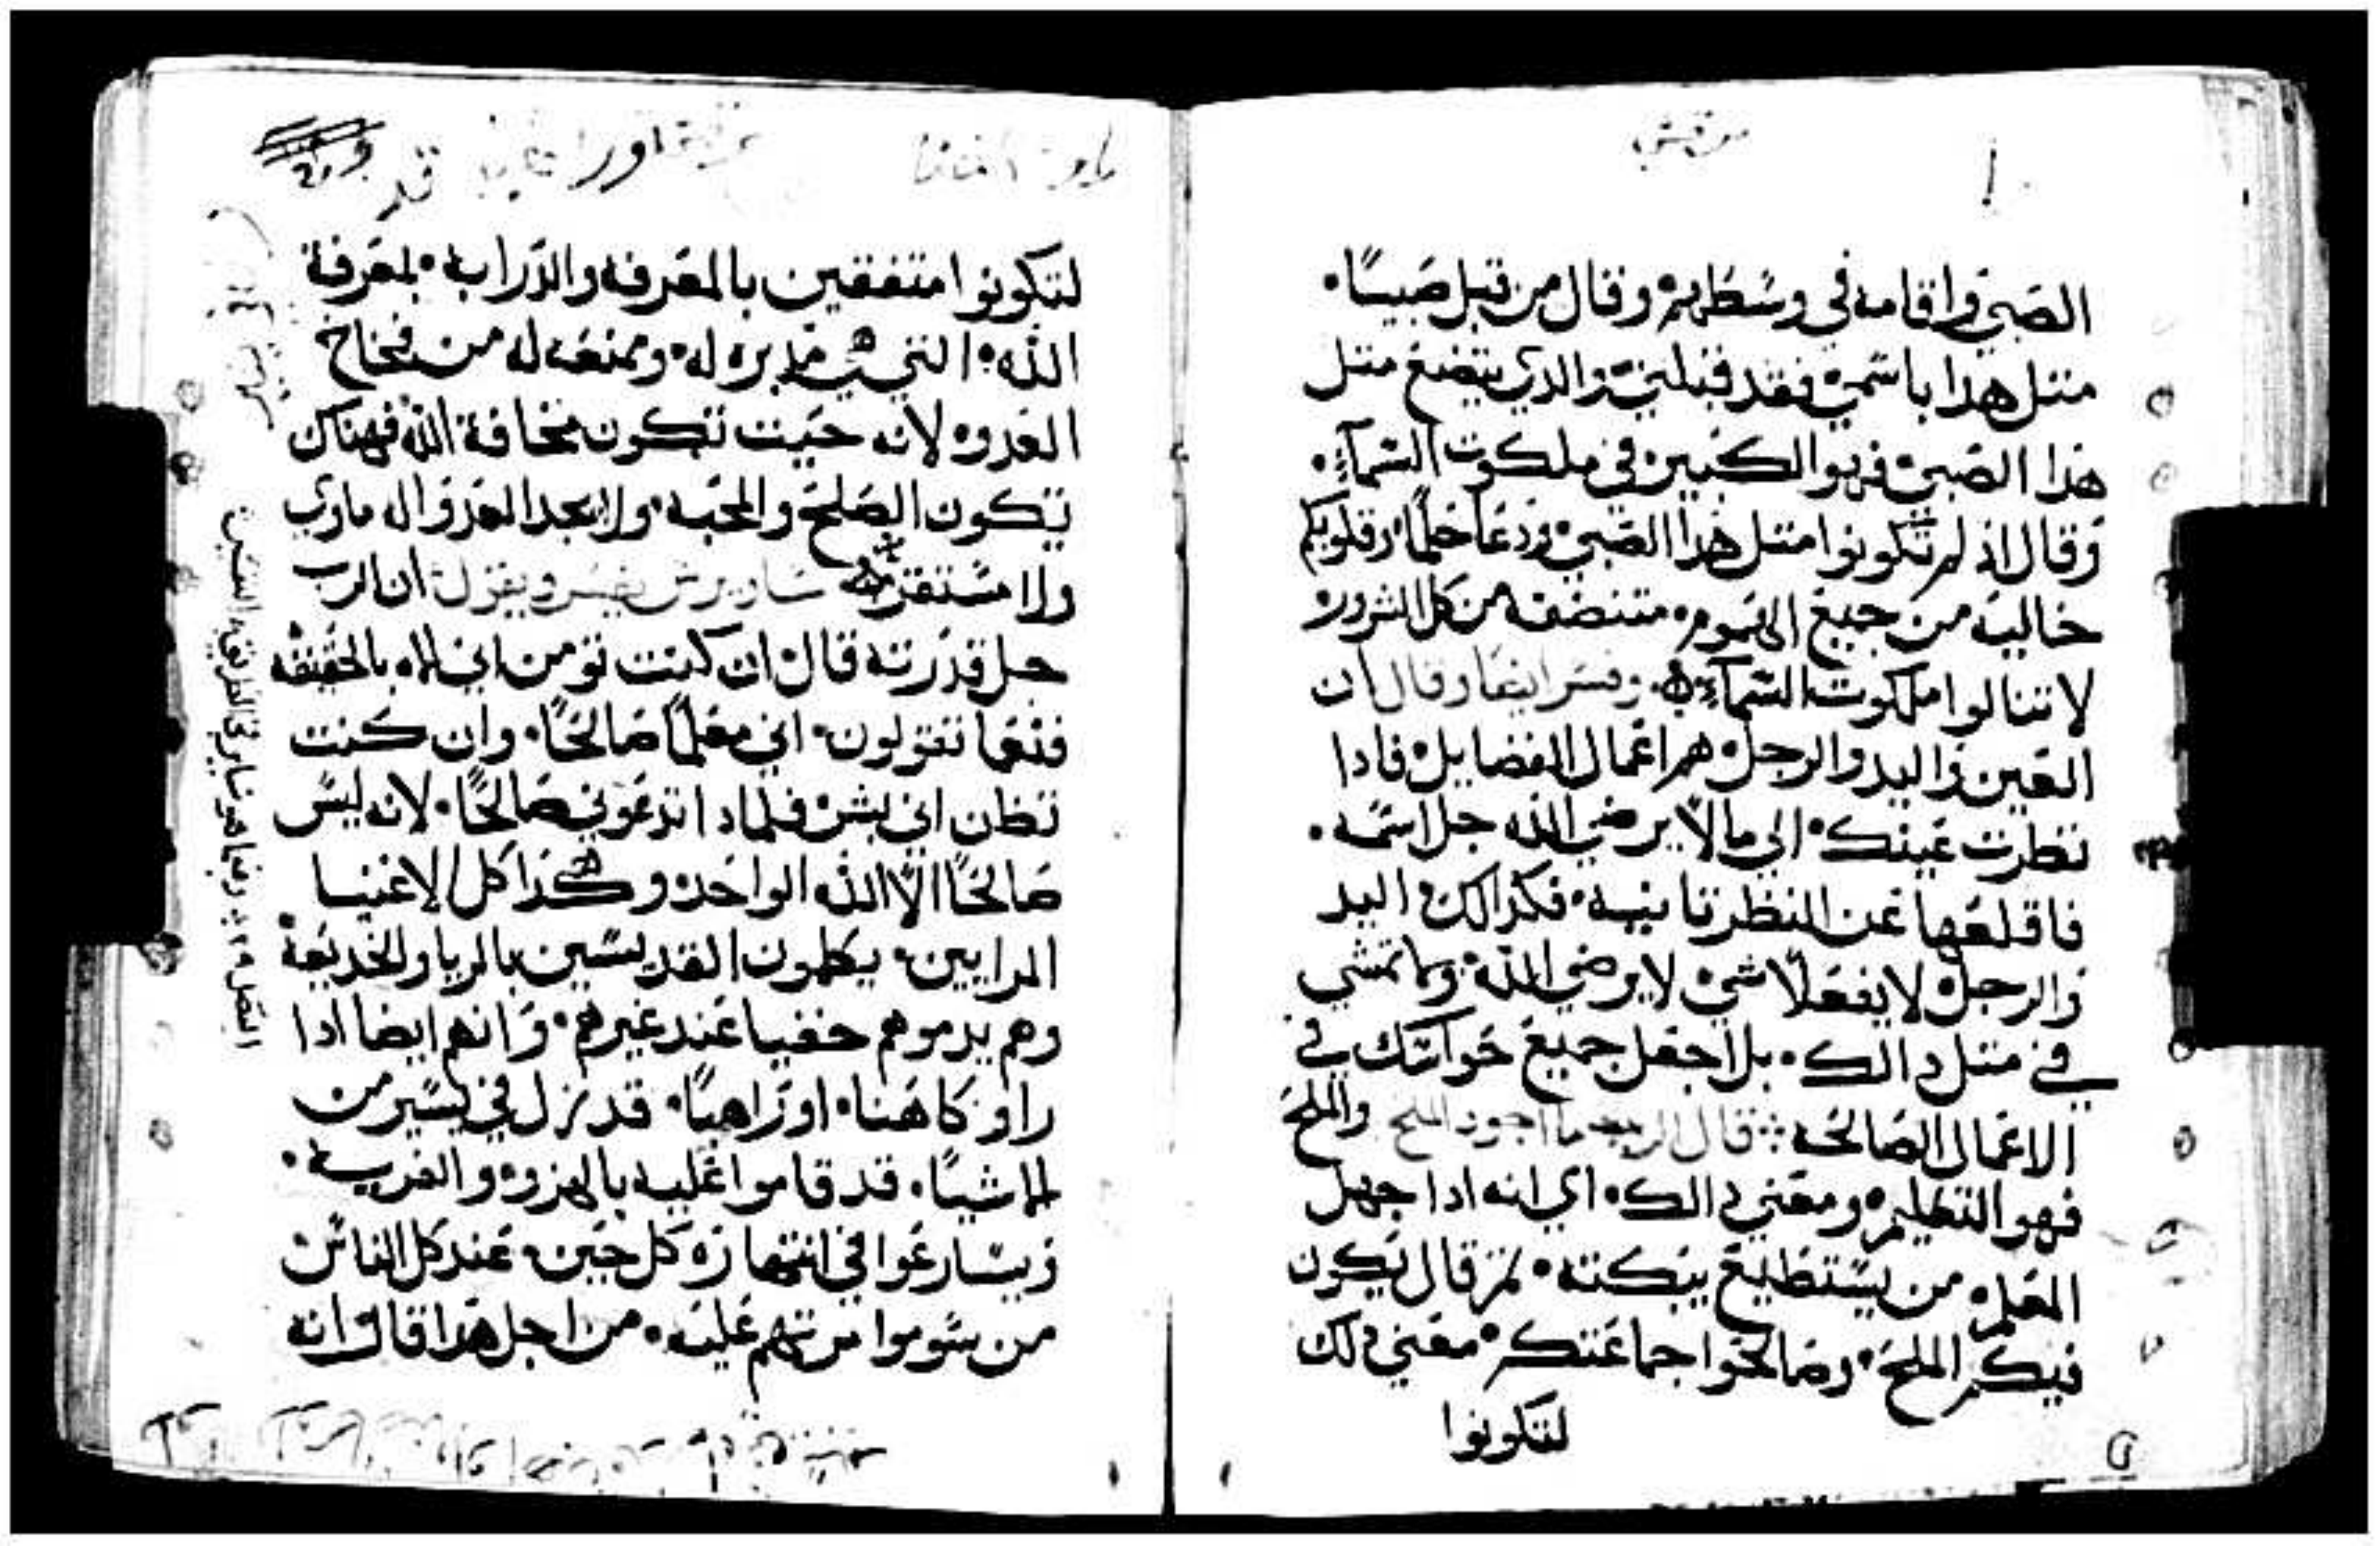 مرقس
الصبي واقامه في وسطهم وقال من قبل صبيًا
متل هدا باسمي فقد قبلني والدي يتضع متل
هدا الصبي فهو الكبير في ملكوت السمآء
وقال اذ لم تكونوا متل هدا الصبي ودعا حلمًا وقلوبكم
خاليه من جميع الهموم متنضفه من كل الشرور
لا تنالوا ملكوت السمآء وفسر ايضا وقال ان
العين واليد والرجل هم اعمال الفضايل فادا
نظرت عينك الي ما لا يرضي الله جل اسمه
فاقلعها عن النظر تانيه فكدالك اليد
والرجل لا يفعلا شي لا يرضي الله وما تمشي
في متل دالك بل اجعل جميع حواسك في
الاعمال الصالحه قال الرب ما اجود الملح والملح
فهو التعليم ومعني دالك اي انه ادا جهل
المعلم من يستطيع يبكته تم قال تكون
فيكم الملح وصالحوا جماعتكم معني دلك
لتكونوا
لتكونوا متفقين بالمعرفه والدرايه بمعرفة
الله التي هي مدبره له ومنعه له من فخاخ
العدو لانه حيت تكون مخافة الله فهناك
تكون الصلح والمحبه ولا يجد العدو اله ماوي
ولا مستقر ساويرس يفسر ويقول ان الرب
جل قدرته قال ان كنت تومن اني اله بالحقيقه
فنعما تقولون اني معلمًا صالحًا وان كنت
تظن اني بشر فلمادا تدعوني صالحًا لانه ليس
صالحًا الّا الله الواحد وهكدا كل الاغنيا
المرايين يكلمون القديسين بالريا والخديعة
وهم يدموهم خفيا عند غيرهم وانهم ايضا ادا
راو كاهنا او راهبًا قد نزل في يسير من
الاشيا قد قاموا عليه بالهزو والفريه
ويسارعوا في انتهازه كل حين عند كل الناس
من شوموا سرتهم عليه من اجل هدا قال انه